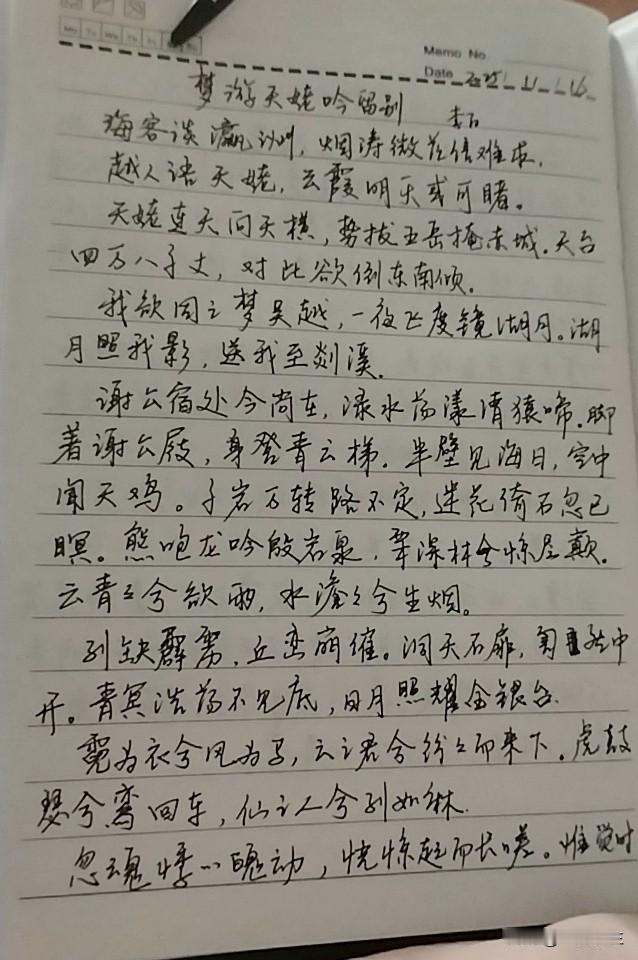 Mo Tu We Th Fr
Memo No.
Date 2025 11 16
梦游天姥吟留别
李白
海客谈瀛洲,烟涛微茫信难求.
越人语天姥,云霞明灭或可睹。
天姥连天向天横,势拔五岳掩赤城.天台
四万八千丈,对此欲倒东南倾.
我欲因之梦吴越,一夜飞度镜湖月。湖
月照我影,送我至剡溪.
谢公宿处今尚在,渌水荡漾清猿啼.脚
著谢公屐,身登青云梯.半壁见海日,空中
闻天鸡。千岩万转路不定,迷花倚石忽已
暝。熊咆龙吟殷岩泉,栗深林兮惊层巅.
云青々兮欲雨,水澹々兮生烟。
列缺霹雳,丘峦崩摧。洞天石扉,訇然中
开。青冥浩荡不见底,日月照耀金银台.
霓为衣兮风为马,云之君兮纷々而来下.虎鼓
瑟兮鸾回车,仙之人兮列如麻.
忽魂悸以魄动,恍惊起而长嗟。惟觉时